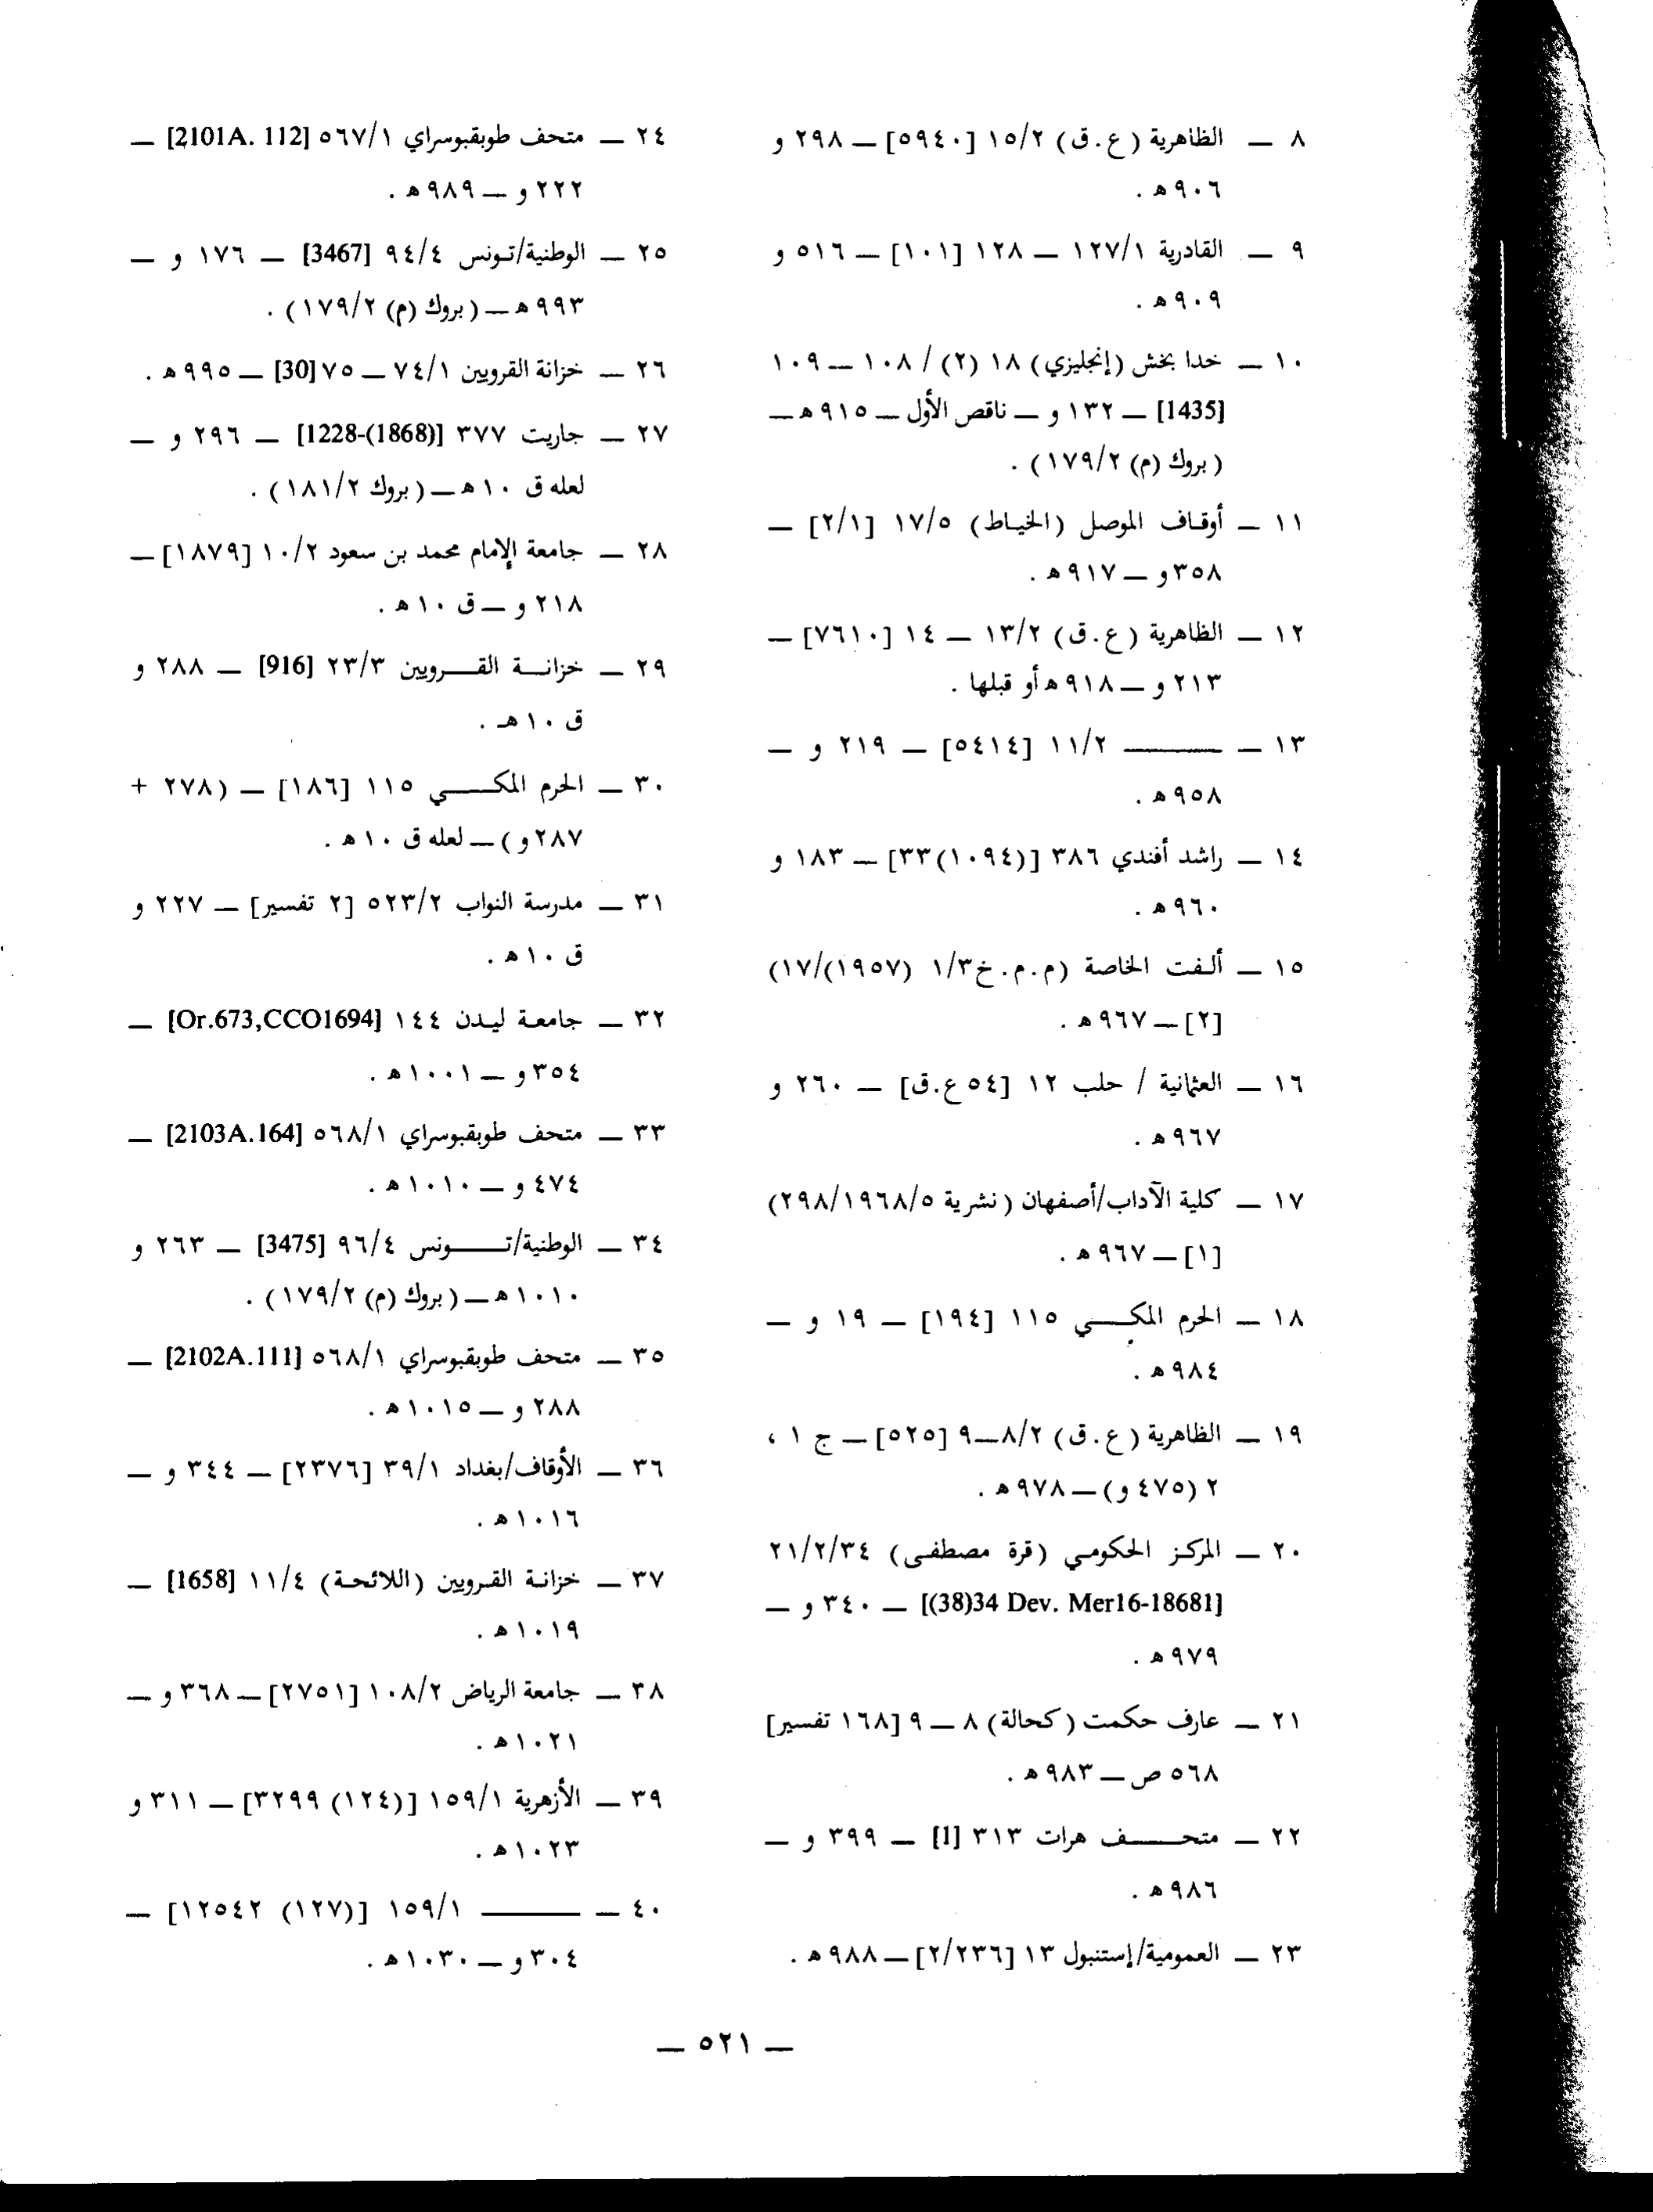 ٨ — الظاهرية (ع.ق) ١٥/٢ [٥٩٤٠] — ٢٩٨ و
٩٠٦ هـ .
٩ — القادرية ١٢٧/١ — ١٢٨ [١٠١] — ٥١٦ و
٩٠٩ هـ .
١٠ — خدا بخش (إنجليزي) ١٨ (٢) / ١٠٨ — ١٠٩
[1435] — ١٣٢ و — ناقص الأول — ٩١٥ هـ —
(بروك (م) ١٧٩/٢) .
١١ — أوقاف الموصل (الخياط) ١٧/٥ [٢/١] —
٣٥٨ و — ٩١٧ هـ .
١٢ — الظاهرية (ع.ق) ١٣/٢ — ١٤ [٧٦١٠] —
٢١٣ و — ٩١٨ هـ أو قبلها .
١٣ — ——— ١١/٢ [٥٤١٤] — ٢١٩ و —
٩٥٨ هـ .
١٤ — راشد أفندي ٣٨٦ [(١٠٩٤)٣٣] — ١٨٣ و
٩٦٠ هـ .
١٥ — ألفت الخاصة (م.م.خ ١/٣ (١٩٥٧)/١٧)
[٢] — ٩٦٧ هـ .
١٦ — العثمانية / حلب ١٢ [٥٤ ع.ق] — ٢٦٠ و
٩٦٧ هـ .
١٧ — كلية الآداب/أصفهان (نشرية ٢٩٨/١٩٦٨/٥)
[١] — ٩٦٧ هـ .
١٨ — الحرم المكي ١١٥ [١٩٤] — ١٩ و —
٩٨٤ هـ .
١٩ — الظاهرية (ع.ق) ٨/٢—٩ [٥٢٥] — ج ١ ،
٢ (٤٧٥ و) — ٩٧٨ هـ .
٢٠ — المركز الحكومي (قرة مصطفى) ٢١/٢/٣٤
[(38)34 Dev. Mer16-18681] — ٣٤٠ و —
٩٧٩ هـ .
٢١ — عارف حكمت (كحالة) ٨ — ٩ [١٦٨ تفسير]
٥٦٨ ص — ٩٨٣ هـ .
٢٢ — متحف هرات ٣١٣ [1] — ٣٩٩ و —
٩٨٦ هـ .
٢٣ — العمومية/إستنبول ١٣ [٢/٢٣٦] — ٩٨٨ هـ .
٢٤ — متحف طوبقبوسراي ٥٦٧/١ [2101A. 112] —
٢٢٢ و — ٩٨٩ هـ .
٢٥ — الوطنية/تونس ٩٤/٤ [3467] — ١٧٦ و —
٩٩٣ هـ — (بروك (م) ١٧٩/٢) .
٢٦ — خزانة القرويين ٧٤/١ — ٧٥ [30] — ٩٩٥ هـ .
٢٧ — جاريت ٣٧٧ [1228-(1868)] — ٢٩٦ و —
لعله ق ١٠ هـ — (بروك ١٨١/٢) .
٢٨ — جامعة الإمام محمد بن سعود ١٠/٢ [١٨٧٩] —
٢١٨ و — ق ١٠ هـ .
٢٩ — خزانة القرويين ٢٣/٣ [916] — ٢٨٨ و
ق ١٠ هـ .
٣٠ — الحرم المكي ١١٥ [١٨٦] — (٢٧٨ +
٢٨٧ و) — لعله ق ١٠ هـ .
٣١ — مدرسة النواب ٥٢٣/٢ [٢ تفسير] — ٢٢٧ و
ق ١٠ هـ .
٣٢ — جامعة ليدن ١٤٤ [Or.673,CCO1694] —
٣٥٤ و — ١٠٠١ هـ .
٣٣ — متحف طوبقبوسراي ٥٦٨/١ [2103A.164] —
٤٧٤ و — ١٠١٠ هـ .
٣٤ — الوطنية/تونس ٩٦/٤ [3475] — ٢٦٣ و
١٠١٠ هـ — (بروك (م) ١٧٩/٢) .
٣٥ — متحف طوبقبوسراي ٥٦٨/١ [2102A.111] —
٢٨٨ و — ١٠١٥ هـ .
٣٦ — الأوقاف/بغداد ٣٩/١ [٢٣٧٦] — ٣٤٤ و —
١٠١٦ هـ .
٣٧ — خزانة القرويين (اللائحة) ١١/٤ [1658] —
١٠١٩ هـ .
٣٨ — جامعة الرياض ١٠٨/٢ [٢٧٥١] — ٣٦٨ و —
١٠٢١ هـ .
٣٩ — الأزهرية ١٥٩/١ [(١٢٤) ٣٢٩٩] — ٣١١ و
١٠٢٣ هـ .
٤٠ — ——— ١٥٩/١ [(١٢٧) ١٢٥٤٢] —
٣٠٤ و — ١٠٣٠ هـ .
— ٥٢١ —